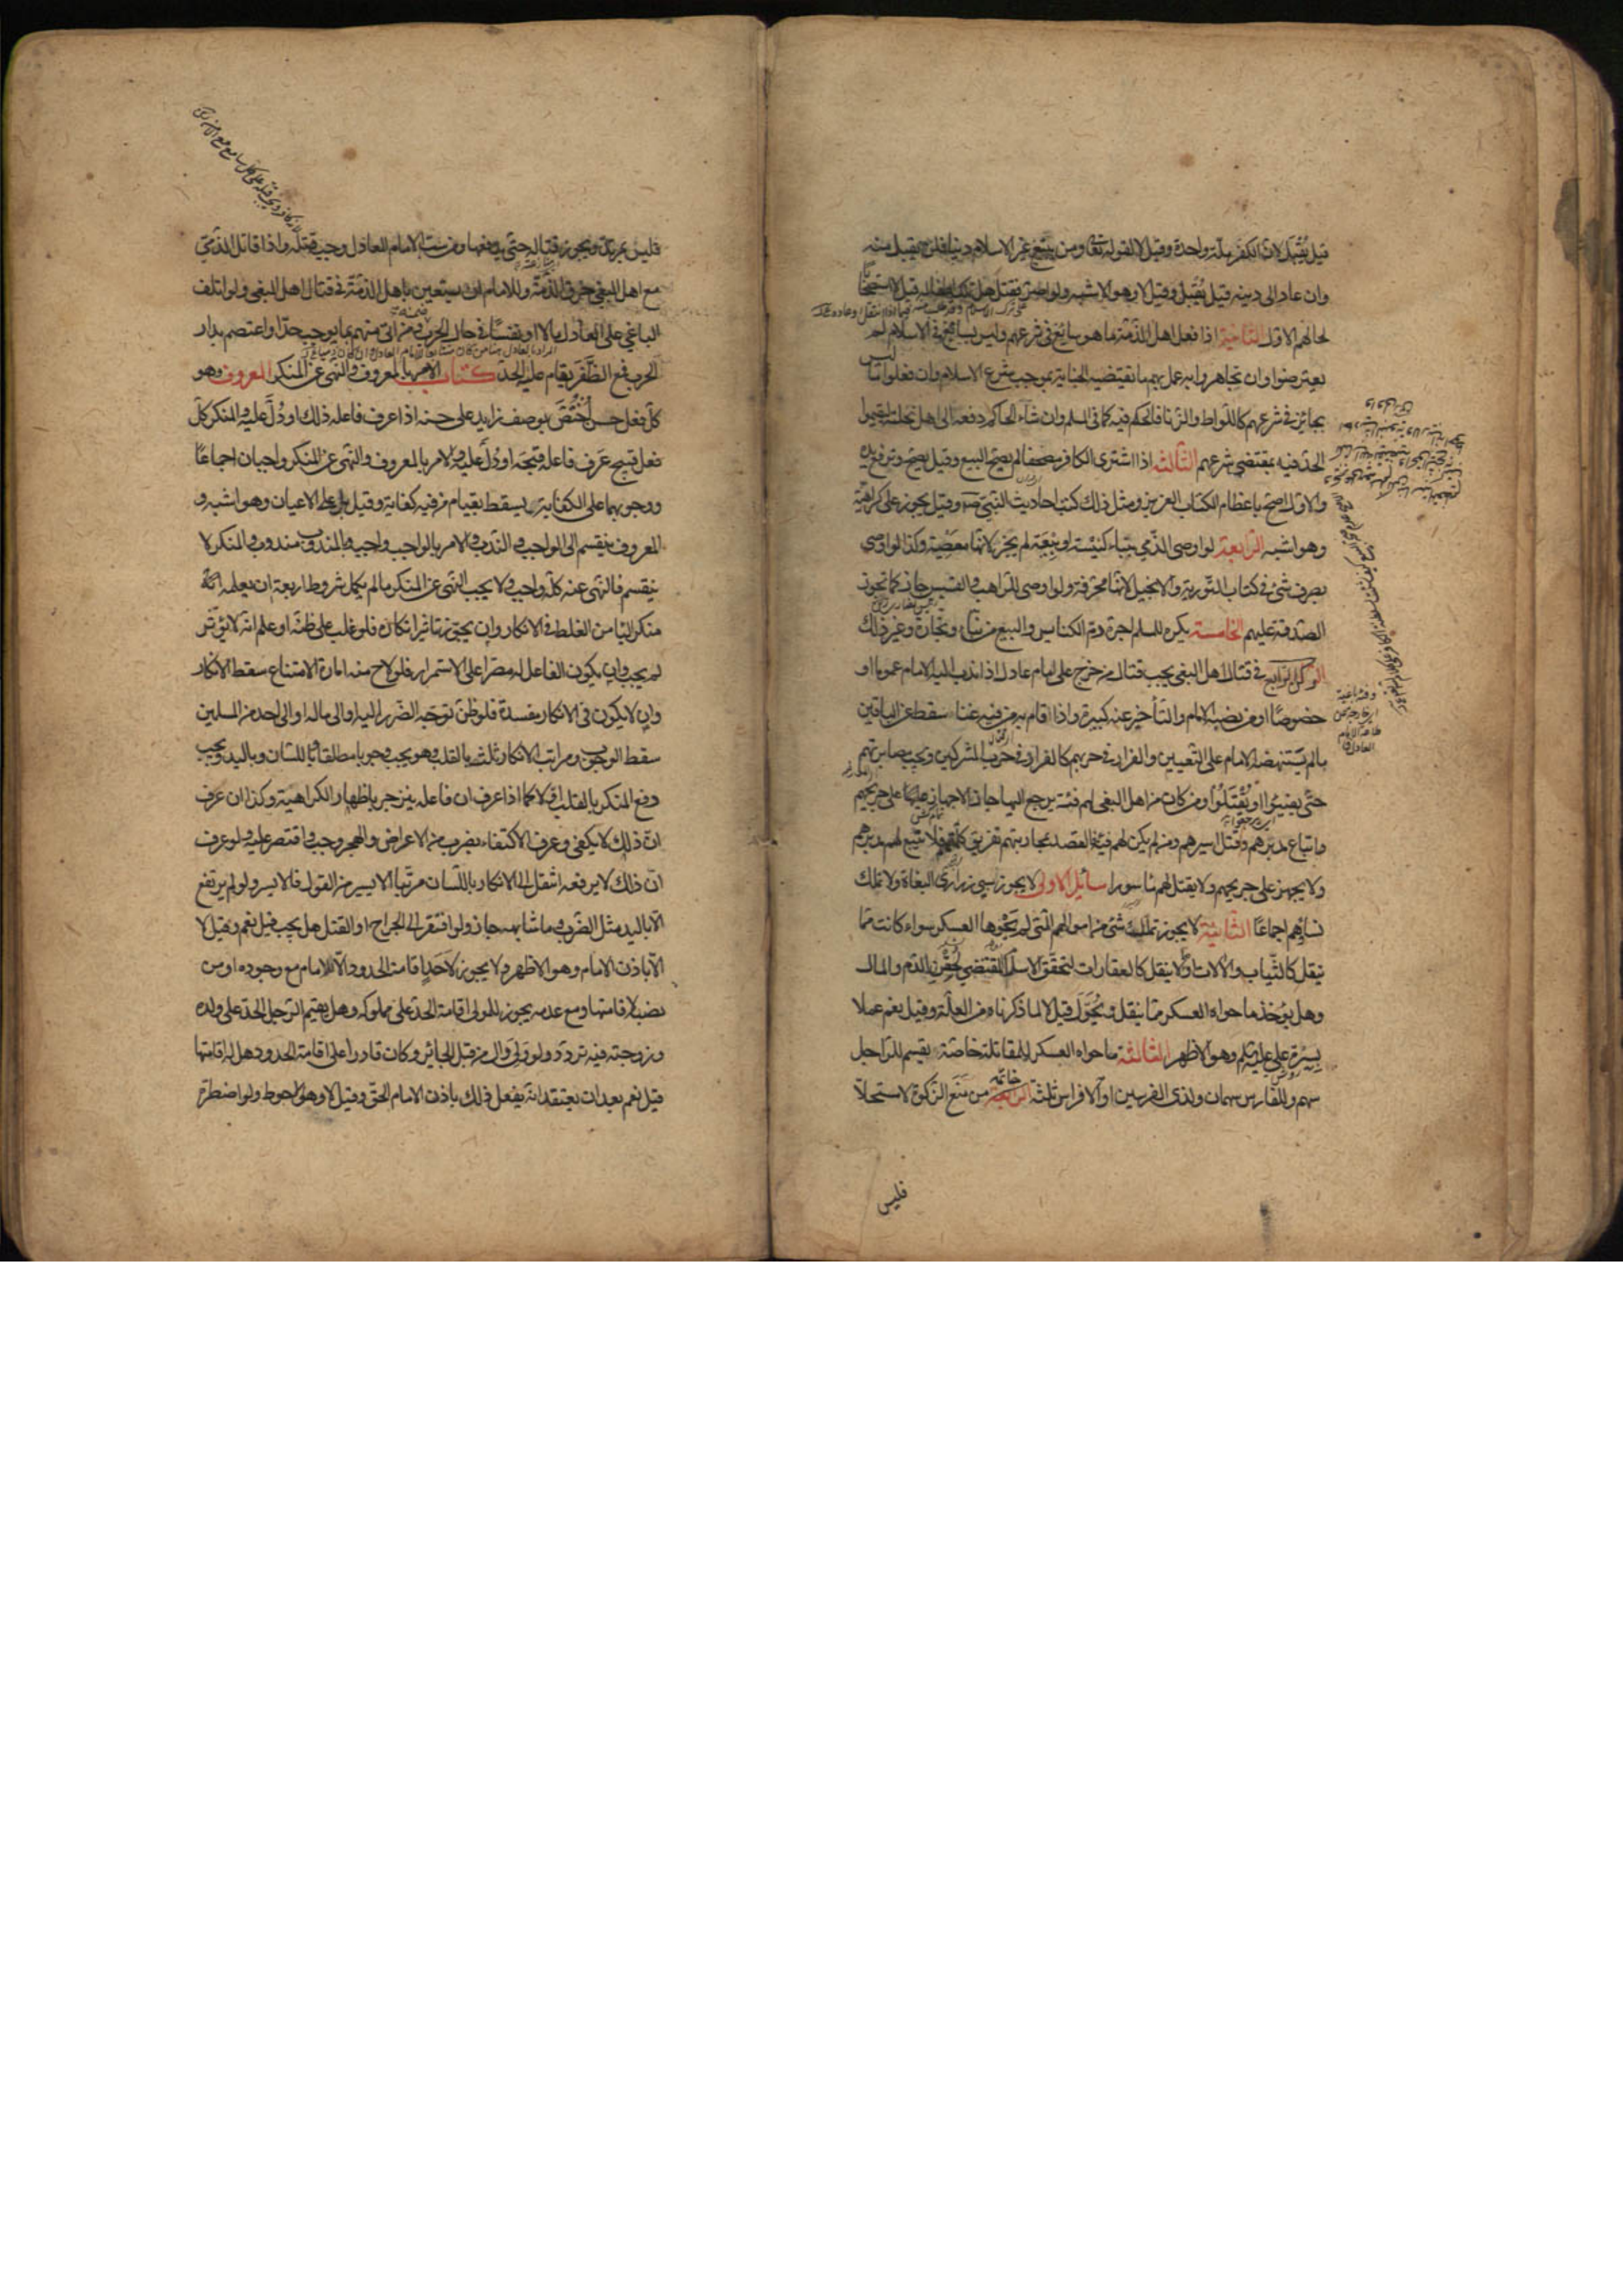 قيل يُقبل لان الكفر ملة واحدة وقيل لا لقوله تعالى ومن يبتغ غير الاسلام دينا فلن يقبل منه
وان عاد الى دينه قيل يُقبل وقيل لا وهو الاشبه ولو اصر فقتل هل تملك اطفاله قيل لا استصحابا
لحالهم الاول الثانية اذا فعل اهل الذمة ما هو سائغ في شرعهم وليس بسائغ في الاسلام لم
يعترضوا وان تجاهروا به عمل بهم ما تقتضيه الجناية بموجب شرع الاسلام وان فعلوا ما ليس
بجائز في شرعهم كاللواط والزنا فالحكم فيه كما في المسلم وان شاء الحاكم دفعه الى اهل نحلته ليقيموا
الحد فيه بمقتضى شرعهم الثالثة اذا اشترى الكافر مصحفا لم يصح البيع وقيل يصح وترفع يده
والاول اصح باعظام الكتاب العزيز ومثل ذلك كتب احاديث النبي وقيل يجوز على كراهية
وهو اشبه الرابعة لو اوصى الذمي ببناء كنيسة او بيعة لم يجز لانها معصية وكذا لو اوصى
بصرف شئ في كتابة التورية والانجيل لانها محرفة ولو اوصى للراهب والقسيس جاز كما تجوز
الصدقة عليهم الخامسة يكره للمسلم اجرة رم الكنايس والبيع من بناء ونجارة وغير ذلك
الركن الرابع في قتال اهل البغي يجب قتال من خرج على امام عادل اذا ندب اليه الامام عموما او
خصوصا او من نصبه الامام والتأخير عنه كبيرة واذا قام به من فيه غنا سقط عن الباقين
ما لم يستنهضه الامام على التعيين والفرار في حربهم كالفرار في حرب المشركين ويجب مصابرتهم
حتى يفيئوا او يُقتلوا ومن كان من اهل البغي لهم فئة يرجع اليها جاز الاجهاز على جريحهم
واتباع مدبرهم وقتل اسيرهم ومن لم يكن لهم فئة فالقصد بمحاربتهم تفريق كلمتهم فلا يتبع لهم مدبرهم
ولا يجهز على جريحهم ولا يقتل لهم ماسور مسائل الاولى لا يجوز سبي ذراري البغاة ولا تملك
نسائهم اجماعا الثانية لا يجوز تملك شئ من اموالهم التي لم يحوها العسكر سواء كانت مما
ينقل كالثياب والالات او لا ينقل كالعقارات لتحقق الاسلام المقتضي لحقن الدم والمال
وهل يؤخذ ما حواه العسكر مما ينقل ويُحول قيل لا لما ذكرناه من العلة وقيل نعم عملا
بسيرة علي عليه السلم وهو الاظهر الثالثة ما حواه العسكر للمقاتلة خاصة يقسم للراجل
سهم وللفارس سهمان ولذي الفرسين او الافراس ثلثة الرابعة من منع الزكوة لا مستحلا
فليس
فليس بمرتد ويجوز قتاله حتى يدفعها ومن سب الامام العادل وجب قتله واذا قاتل الذمي
مع اهل البغي خرق الذمة وللامام ان يستعين باهل الذمة في قتال اهل البغي ولو اتلف
الباغي على العادل مالا او نفسا في حال الحرب ضمنه ومن اتى منهم بما يوجب حدا واعتصم بدار
الحرب فمع الظفر يقام عليه الحد كتاب الامر بالمعروف والنهي عن المنكر المعروف وهو
كل فعل حسن اختُص بوصف زايد على حسنه اذا عرف فاعله ذلك او دُلّ عليه والمنكر كل
فعل قبيح عرف فاعله قبحه او دُلّ عليه والامر بالمعروف والنهي عن المنكر واجبان اجماعا
ووجوبهما على الكفاية يسقط بقيام من فيه كفاية وقيل بل على الاعيان وهو اشبه و
المعروف ينقسم الى الواجب والندب والامر بالواجب واجب وبالمندوب مندوب والمنكر لا
ينقسم فالنهي عنه كله واجب ولا يجب النهي عن المنكر ما لم يكمل شروط اربعة ان يعلمه
منكرا ليأمن الغلط في الانكار وان يجوز تاثير انكاره فلو غلب على ظنه او علم انه لا يؤثر
لم يجب وان يكون الفاعل له مصرا على الاستمرار فلو لاح منه امارة الامتناع سقط الانكار
وان لا يكون في الانكار مفسدة فلو ظن توجه الضرر اليه او الى ماله او الى احد من المسلمين
سقط الوجوب ومراتب الانكار ثلث بالقلب وهو يجب وجوبا مطلقا وباللسان وباليد ويجب
دفع المنكر بالقلب اولا كما اذا عرف ان فاعله ينزجر باظهار الكراهية وكذا ان عرف
ان ذلك لا يكفي وعرف الاكتفاء بضرب من الاعراض والهجر وجب واقتصر عليه ولو عرف
ان ذلك لا يرفعه انتقل الى الانكار باللسان مرتبا الايسر من القول فالايسر ولو لم يرتفع
الا باليد مثل الضرب وما شابهه جاز ولو افتقر الى الجراح او القتل هل يجب قيل نعم وقيل لا
الا باذن الامام وهو الاظهر ولا يجوز لاحد اقامة الحدود الا للامام مع وجوده او من
نصبه لاقامتها ومع عدمه يجوز للمولى اقامة الحد على مملوكه وهل يقيم الرجل الحد على ولده
وزوجته فيه تردد ولو ولي وال من قبل الجائر وكان قادرا على اقامة الحدود هل له اقامتها
قيل نعم بعد ان يعتقد انه يفعل ذلك باذن الامام الحق وقيل لا وهو الاحوط ولو اضطره